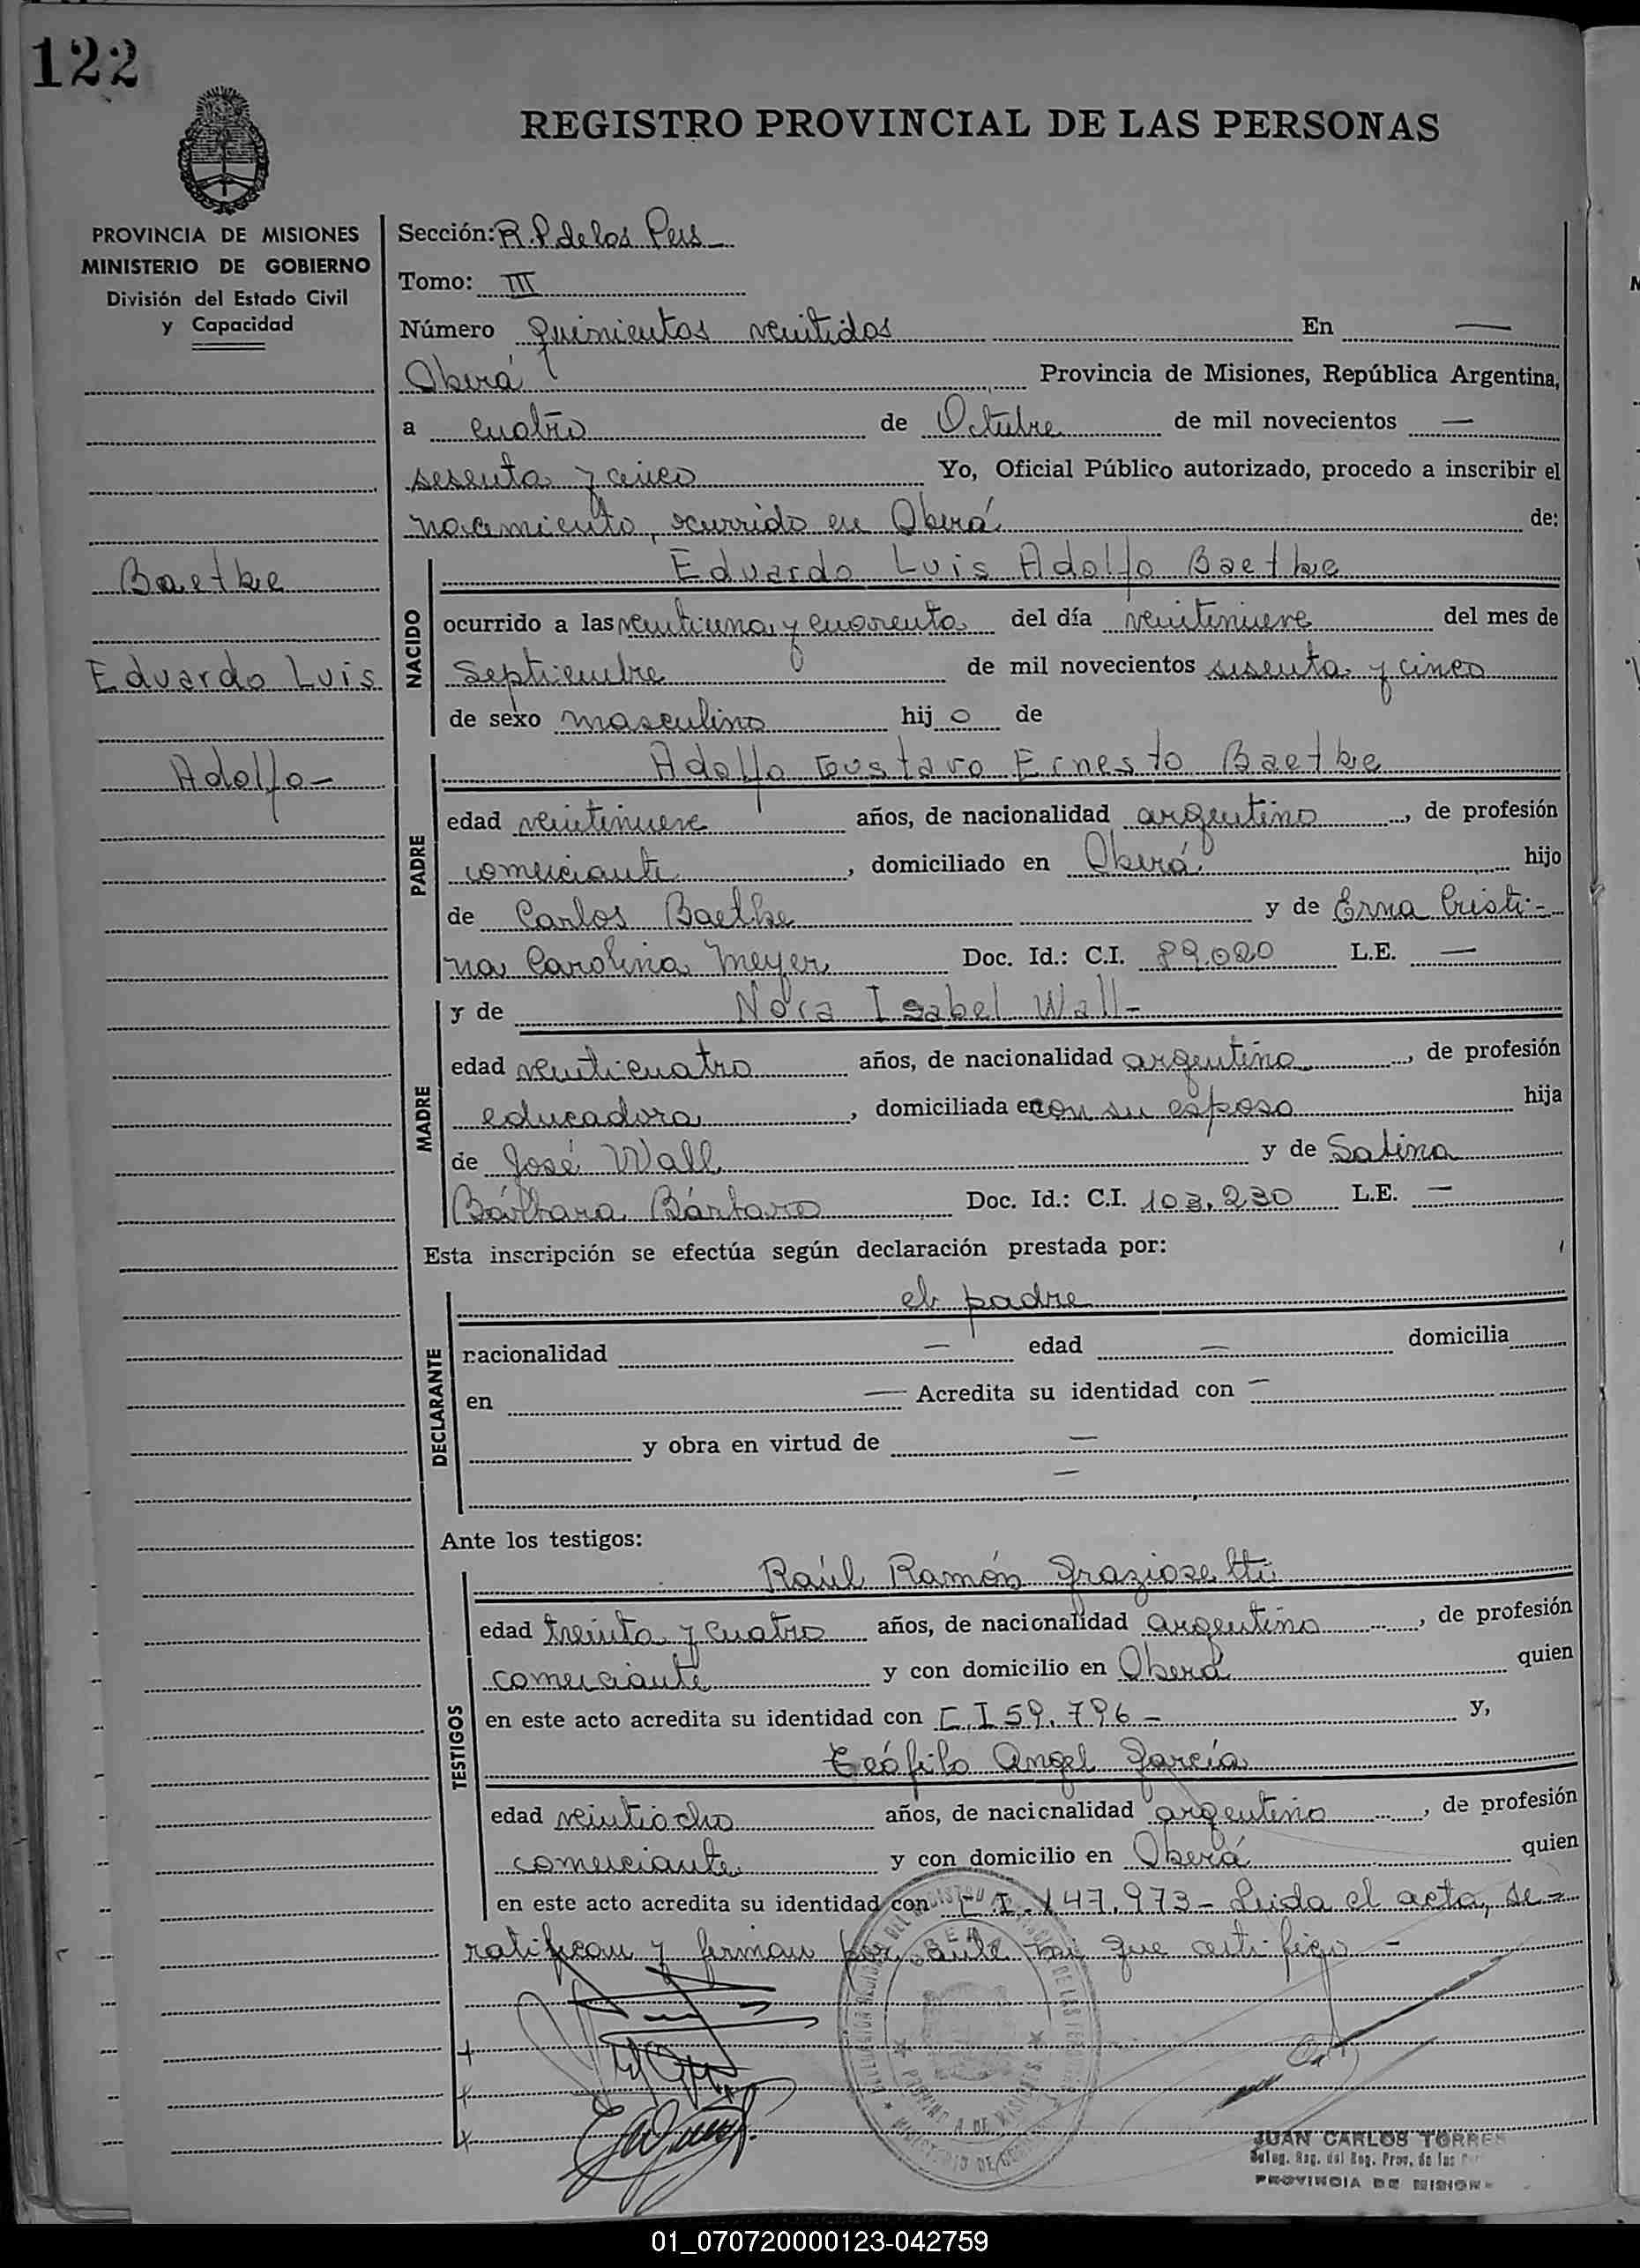 122
REGISTRO PROVINCIAL DE LAS PERSONAS
PROVINCIA DE MISIONES
MINISTERIO DE GOBIERNO
División del Estado Civil
y Capacidad
Baetke
Eduardo Luis
Adolfo-
Sección: R.P. de los Pers
Tomo: III
Número quinientos veintidos En —
Oberá Provincia de Misiones, República Argentina,
a cuatro de Octubre de mil novecientos —
sesenta y cinco Yo, Oficial Público autorizado, procedo a inscribir el
nacimiento, ocurrido en Oberá de:
NACIDO
Eduardo Luis Adolfo Baetke
ocurrido a las veintiuna y cuarenta del día veintinueve del mes de
Septiembre de mil novecientos sesenta y cinco
de sexo masculino hijo de
PADRE
Adolfo Gustavo Ernesto Baetke
edad veintinueve años, de nacionalidad argentino, de profesión
comerciante, domiciliado en Oberá hijo
de Carlos Baetke y de Erna Cristi-
na Carolina Meyer Doc. Id.: C.I. 89.020 L.E. —
MADRE
y de Nora Isabel Wall-
edad veinticuatro años, de nacionalidad argentina, de profesión
educadora, domiciliada en con su esposo hija
de José Wall y de Satina
Bárbara Bárbaro Doc. Id.: C.I. 103.230 L.E. —
Esta inscripción se efectúa según declaración prestada por:
DECLARANTE
el padre
nacionalidad — edad — domicilia
en — Acredita su identidad con —
y obra en virtud de —
—
Ante los testigos:
TESTIGOS
Raúl Ramón Graziosetti
edad treinta y cuatro años, de nacionalidad argentino, de profesión
comerciante y con domicilio en Oberá quien
en este acto acredita su identidad con C.I 59.796- y,
Teófilo Angel García
edad veintiocho años, de nacionalidad argentino, de profesión
comerciante y con domicilio en Oberá quien
en este acto acredita su identidad con C.I. 147.973- Leida el acta, se-
ratifican y firman por ante mi que certifico -
OBERA
PROVINCIA DE MISIONES
MINISTERIO DE GOBIERNO
JUAN CARLOS TORRES
Deleg. Reg. del Reg. Prov. de las
PROVINCIA DE MISION
01_070720000123-042759